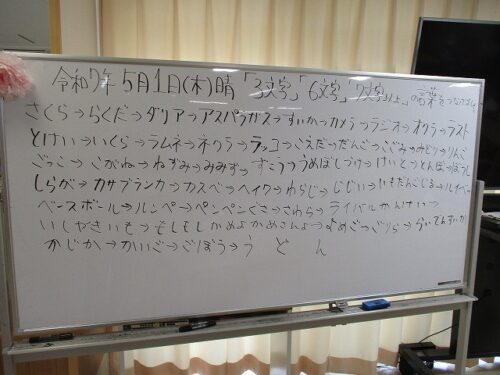 令和7年 5月1日(木)晴 「3文字」「6文字」「7文字以上」の言葉をつなげる
さくら→らくだ→ダリア→アスパラガス→すいか→カメラ→ラジオ→オクラ→ラスト
とけい→いくら→ラムネ→ネクラ→ラッコ→こえだ→だんご→ごみ→みどり→りんご
ごっこ→こがね→ねずみ→みみず→ずこう→うめぼしづけ→けいと→とんぼ→ぼうし
しらが→カサブランカ→カスベ→ヘイワ→わらじ→じじい→いももだんごじる→ルイベ→
ベースボール→ルンペ→ペンペンぐさ→さわら→ライバルかんけい→
いしやきいも→もしもしかめよかめさんよ→よめご→ごりら→らいでんすいか
かじか→かいご→ごぼう→うどん